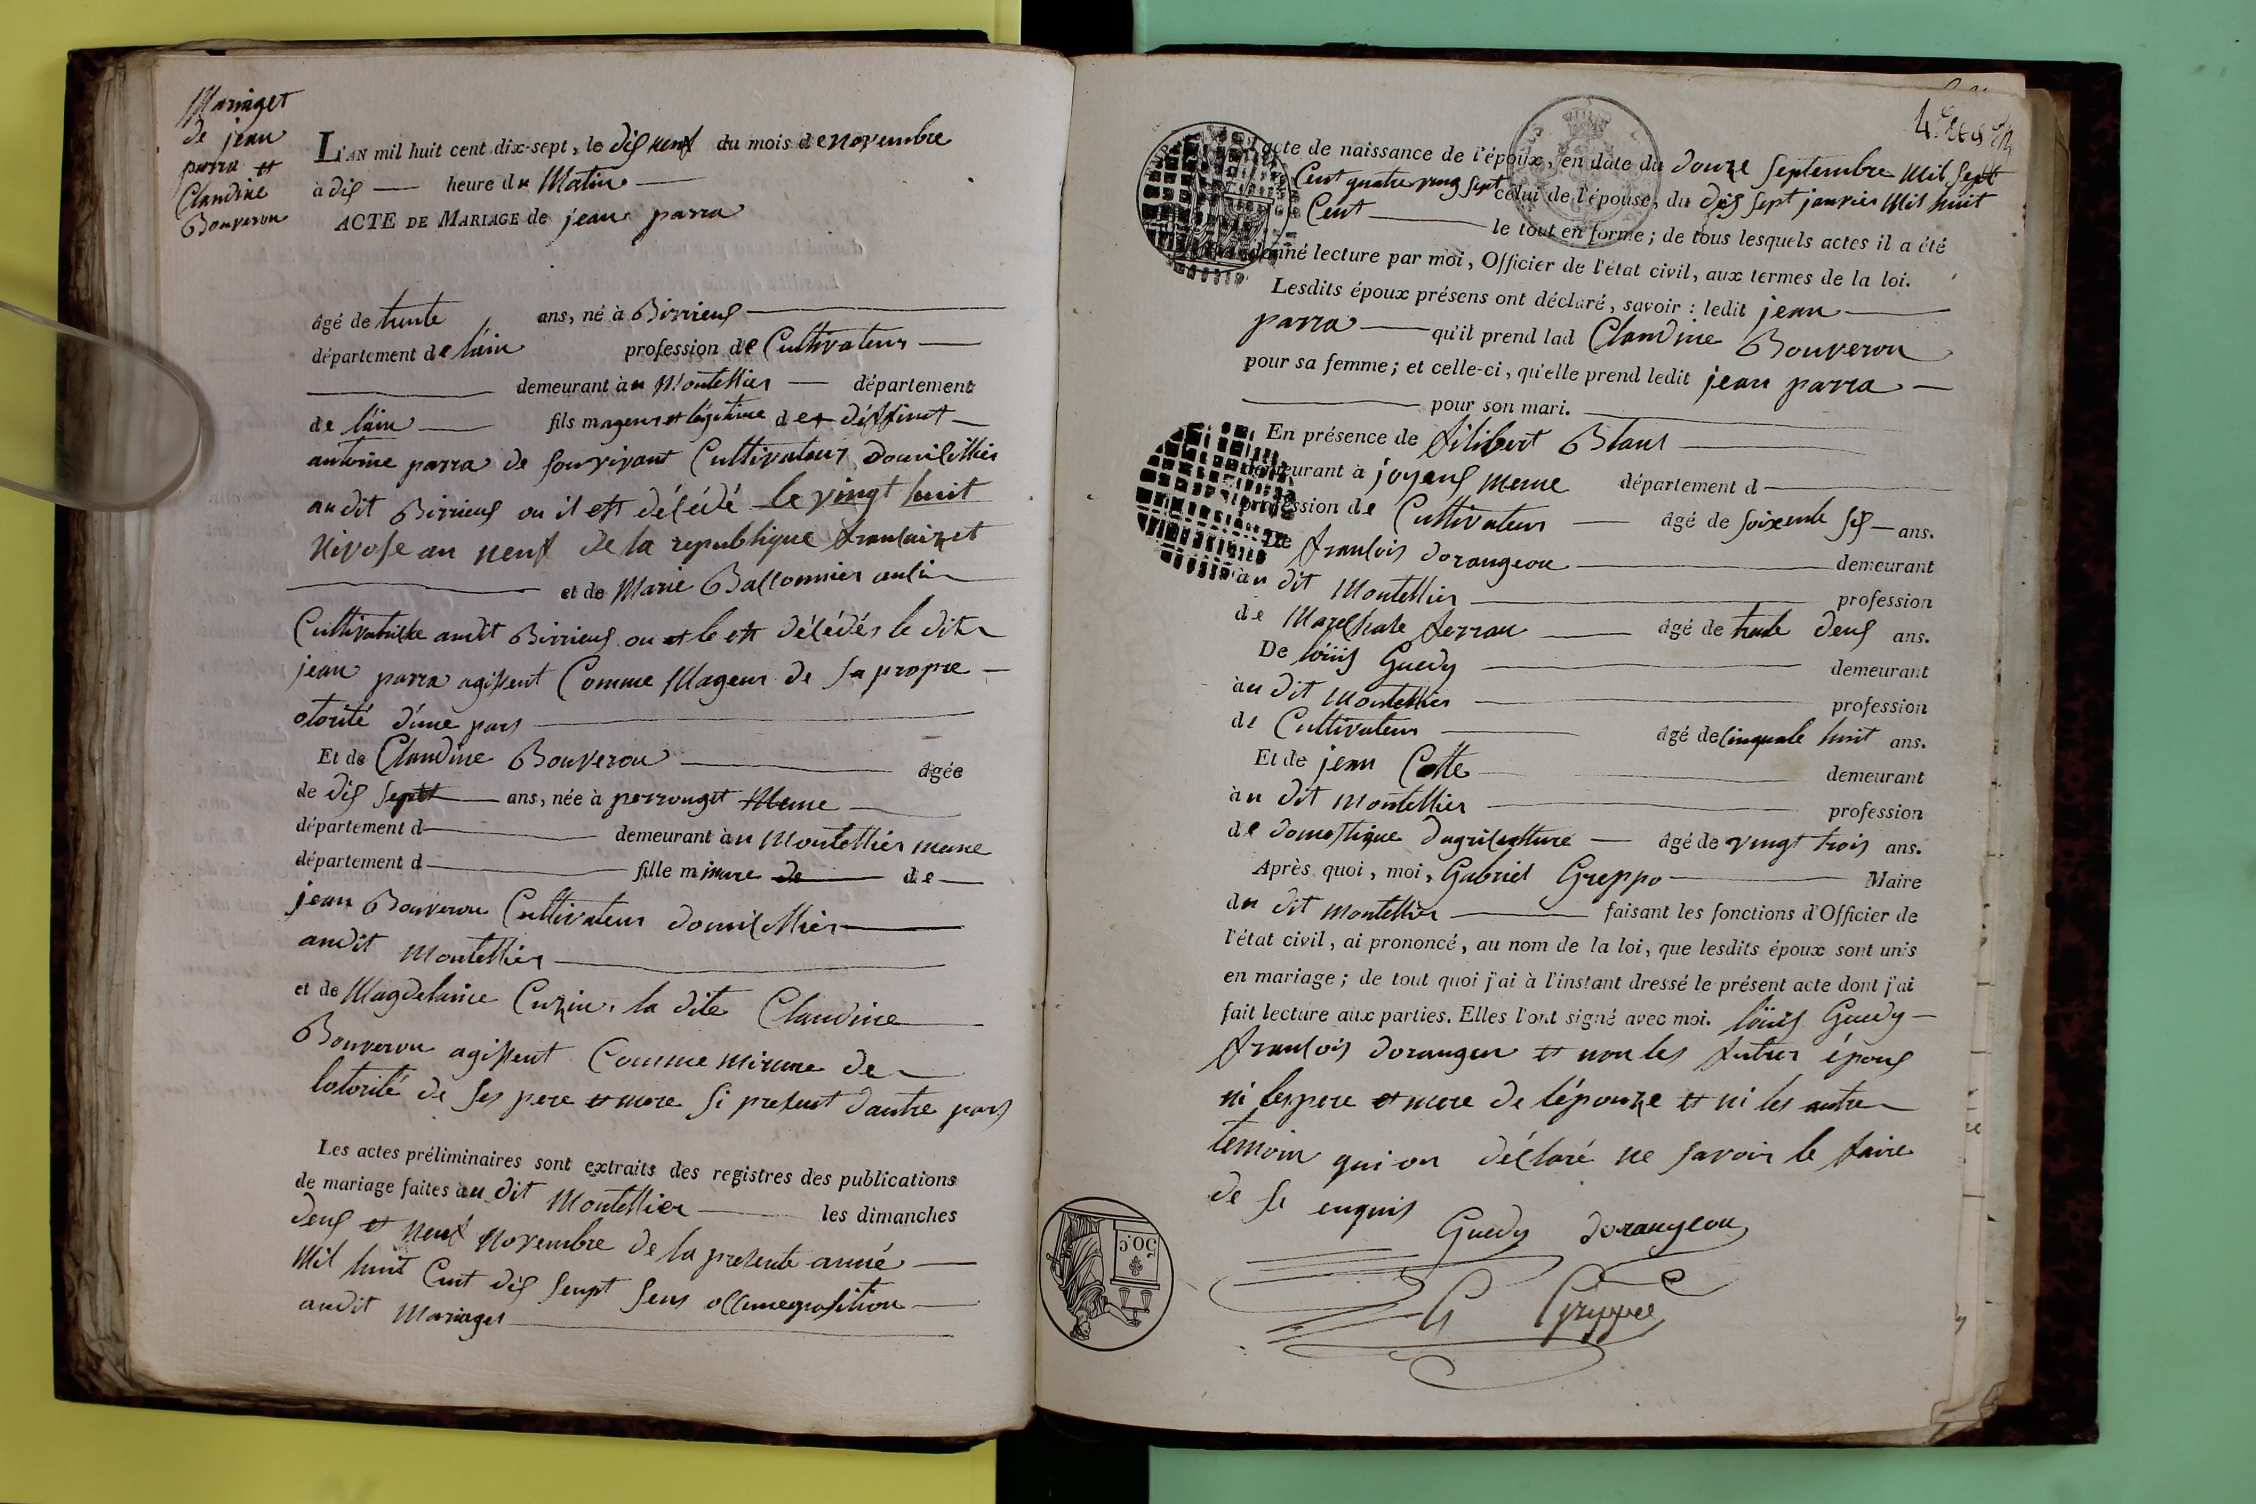 Mariaget
de jean
parra et
Claudine
Bouveron
L'AN mil huit cent dix-sept, le dis neuf du mois de novembre
à dis heure du Matin
ACTE DE MARIAGE de jean parra
âgé de trente ans, né à Birrieus
département de lain profession de Cultivateur
demeurant au Montellier département
de lain fils mageur et légitime de deffunt
antoine parra de sonvivant Cultivateur Domicillier
audit Birrieus ou il est décédé le vingt huit
Nivose an neuf de la republique francaizet
et de Marie Ballonnier
Cultivatrise audit Birrieus ou et le est décédés le dit
jean parra agissent Comme Mageur de sa propre
otorité d'une pars
Et de Claudine Bouveron âgée
de dis sept ans, née à perrouget Meme
département d demeurant au Montellier meme
département d fille mineure de de
jean Bouveron Cultivateur domicillier
audit Montellier
et de Magdelaine Cuzin, la dite Claudine
Bouveron agissent Comme minure de
lotorité de ses pere et mere si present d'autre pars
Les actes préliminaires sont extraits des registres des publications
de mariage faites au dit Montellier les dimanches
deus et neuf novembre de la presente année
Mil huit Cent dis seupt sens occuneposition
audit Mariages
acte de naissance de l'époux, en date du douze septembre Mil sept
Cent quatre ving sept celui de l'épouse, du dis sept janvier Mil huit
Cent le tout en forme; de tous lesquels actes il a été
donné lecture par moi, Officier de l'état civil, aux termes de la loi.
Lesdits époux présens ont déclaré, savoir : ledit jean
parra qu'il prend lad Claudine Bouveron
pour sa femme; et celle-ci, qu'elle prend ledit jean parra
pour son mari.
En présence de filibert Blanc
demeurant à joyeus meme département d
profession de Cultivateur âgé de soixente sis ans.
De francois dorangeon demeurant
au dit Montellier profession
de Marechale ferran âgé de trente deus ans.
De loüis Guedy demeurant
au dit Montellier profession
de Cultivateur âgé de cinquate huit ans.
Et de jean Cotte demeurant
au dit Montellier profession
de domestique dagriculture âgé de vingt trois ans.
Après quoi, moi, Gabriel Greppo Maire
du dit Montellier faisant les fonctions d'Officier de
l'état civil, ai prononcé, au nom de la loi, que lesdits époux sont unis
en mariage; de tout quoi j'ai à l'instant dressé le présent acte dont j'ai
fait lecture aux parties. Elles l'ont signé avec moi. loüis Guedy
francois dorangeon et non les futurs épous
ni les pere et mere de l'épouze et ni les autre
temoin qui on déclaré ne savoir le faire
de se enquis
Guedy dorangeon
G Greppo
50 c.